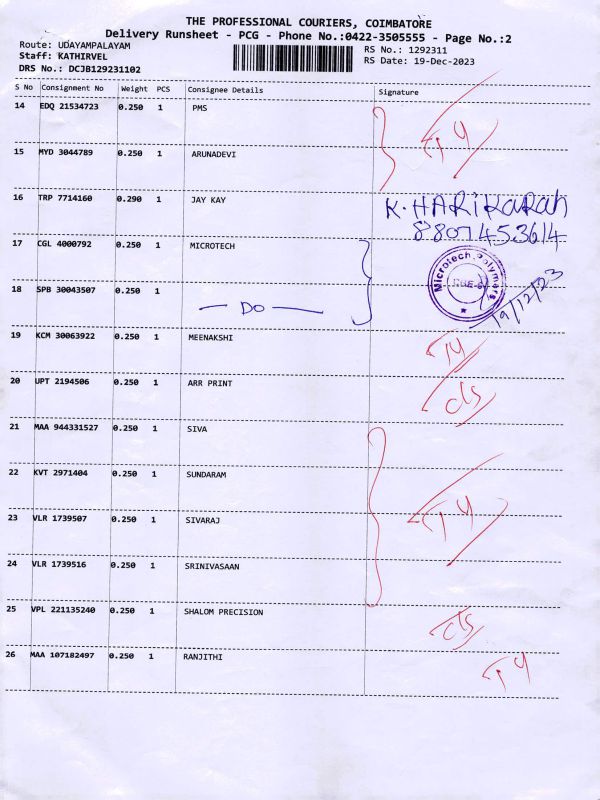 THE PROFESSIONAL COURIERS, COIMBATORE
Delivery Runsheet - PCG - Phone No.:0422-3505555 - Page No.:2
Route: UDAYAMPALAYAM
Staff: KATHIRVEL
DRS No.: DCJB129231102
RS No.: 1292311
RS Date: 19-Dec-2023
S No Consignment No Weight PCS Consignee Details Signature
14 EDQ 21534723 0.250 1 PMS
T4
15 MYD 3044789 0.250 1 ARUNADEVI
16 TRP 7714160 0.290 1 JAY KAY K. HARIKARAN
8807453614
17 CGL 4000792 0.250 1 MICROTECH
Microtech Polymers
18 SPB 30043507 0.250 1 — DO —
19/12/23
19 KCM 30063922 0.250 1 MEENAKSHI T4
20 UPT 2194506 0.250 1 ARR PRINT cls
21 MAA 944331527 0.250 1 SIVA
22 KVT 2971404 0.250 1 SUNDARAM
T4
23 VLR 1739507 0.250 1 SIVARAJ
24 VLR 1739516 0.250 1 SRINIVASAAN
25 VPL 221135240 0.250 1 SHALOM PRECISION cls
26 MAA 107182497 0.250 1 RANJITHI T4